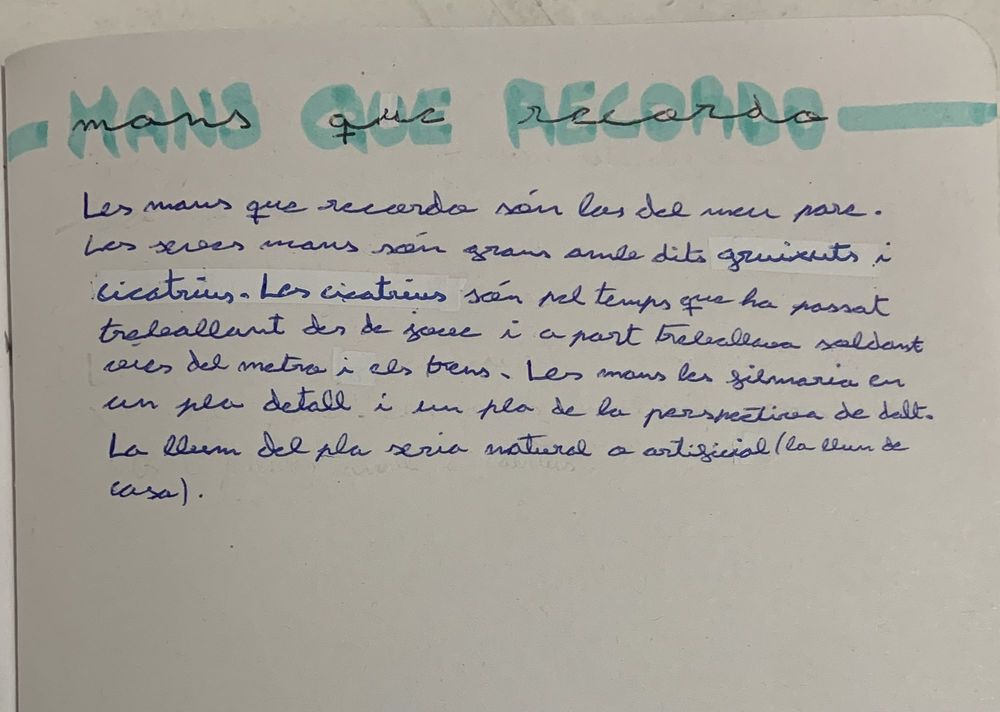 MANS QUE RECORDO
mans que recordo
Les mans que recordo són les del meu pare.
Les seves mans són grans amb dits gruixuts i
cicatrius. Les cicatrius són pel temps que ha passat
treballant des de jove i a part treballava soldant
vies del metro i els trens. Les mans les filmaria en
un pla detall i un pla de la perspectiva de dalt.
La llum del pla seria natural o artificial (la llum de
casa).